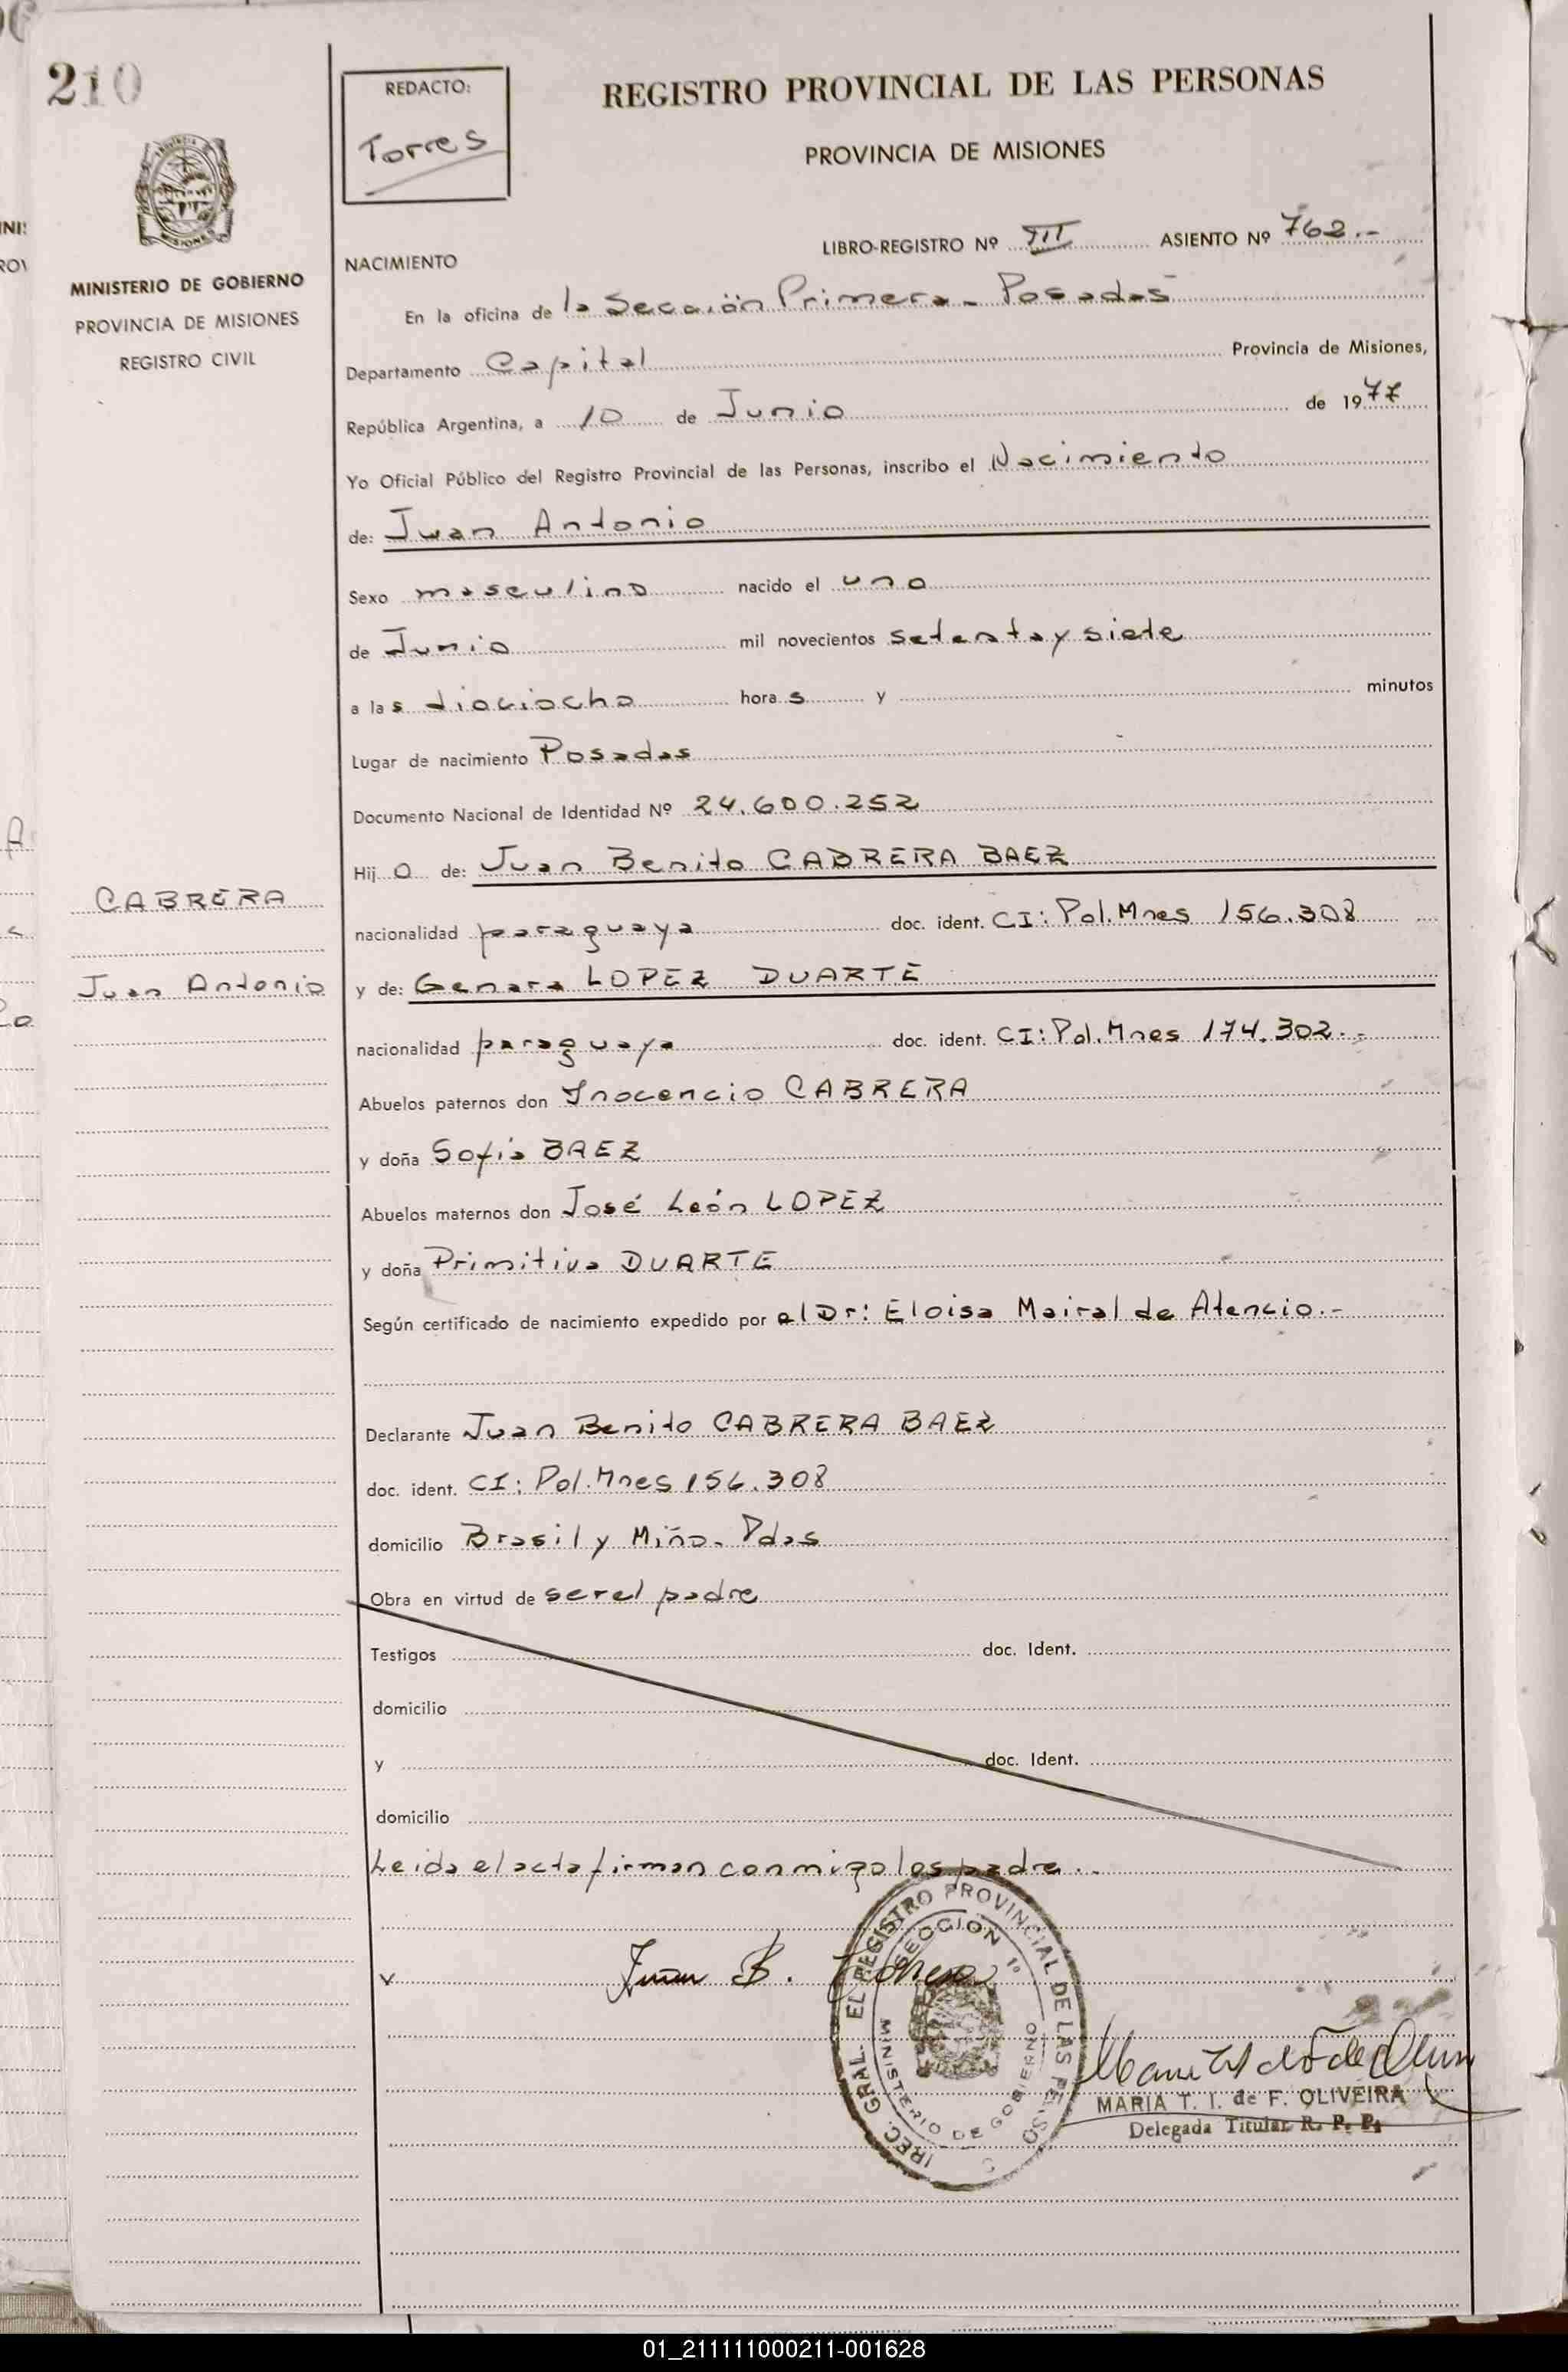 210
REDACTO:
Torres
REGISTRO PROVINCIAL DE LAS PERSONAS
PROVINCIA DE MISIONES
MINISTERIO DE GOBIERNO
PROVINCIA DE MISIONES
REGISTRO CIVIL
LIBRO-REGISTRO Nº III ASIENTO Nº 762.-
NACIMIENTO
En la oficina de la Sección Primera - Posadas
Departamento Capital Provincia de Misiones,
República Argentina, a 10 de Junio de 1977
Yo Oficial Público del Registro Provincial de las Personas, inscribo el Nacimiento
de: Juan Antonio
Sexo masculino nacido el uno
de Junio mil novecientos setenta y siete
a las dieciocho horas y minutos
Lugar de nacimiento Posadas
Documento Nacional de Identidad Nº 24.600.252
Hijo de: Juan Benito CABRERA BAEZ
CABRERA
nacionalidad paraguaya doc. ident. CI: Pol. Mnes 156.308
Juan Antonio
y de: Genara LOPEZ DUARTE
nacionalidad paraguaya doc. ident. CI: Pol. Mnes 174.302.-
Abuelos paternos don Inocencio CABRERA
y doña Sofia BAEZ
Abuelos maternos don José León LOPEZ
y doña Primitiva DUARTE
Según certificado de nacimiento expedido por el Dr: Eloisa Mairal de Atencio.-
Declarante Juan Benito CABRERA BAEZ
doc. ident. CI: Pol. Mnes 156.308
domicilio Brasil y Miño. Pdas
Obra en virtud de ser el padre
Testigos doc. Ident.
domicilio
y doc. Ident.
domicilio
Leida el acta firman conmigo los padre.-
Juan B. Cabrera
DIREC. GRAL. EL REGISTRO PROVINCIAL DE LAS PE
SECCION 1º
MINISTERIO DE GOBIERNO
MARIA T. I. de F. OLIVEIRA
Delegada Titular R. P. P.
01_211111000211-001628